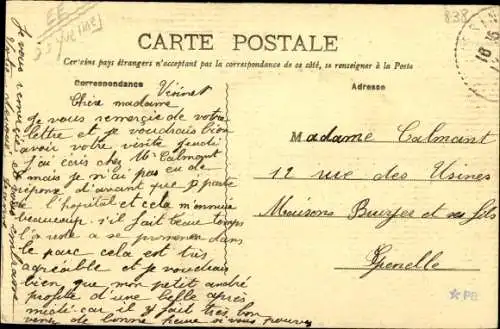 EE
Yvelines
838
CARTE POSTALE
Certains pays étrangers n'acceptant pas la correspondance de ce côté, se renseigner à la Poste
Correspondance
Adresse
Vésinet
Chère madame
Je vous remercie de votre
lettre et je voudrais bien
avoir votre visite jeudi
J'ai écris chez Mr Calmant
mais je n'ai pas eu de
réponse d'avant que je parte
de l'hopital et cela m'ennuie
beaucoup. s'il fait beau temps
a se promener dans
le parc cela est très
agréable et je voudrais
bien que mon petit andré
profite d'une belle après
midi car il y fait très bon
venez de bonne heure si vous pouvez
Je vous remercie
Madame Calmant
12 rue des Usines
Maisons et ses fils
Grenelle
18
*PE